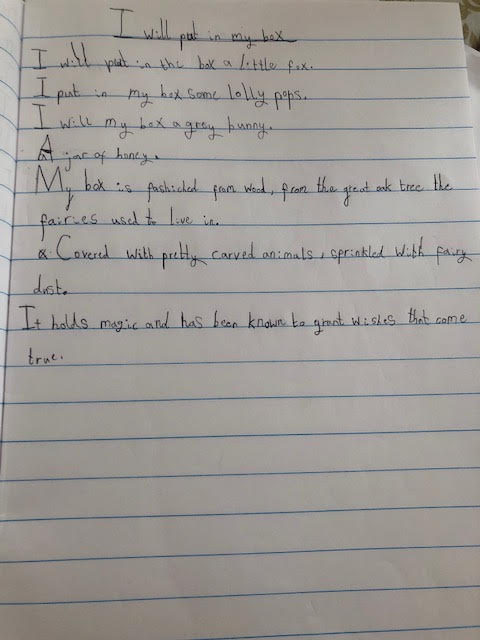 I will put in my box
I will put in the box a little fox.
I put in my box some lolly pops.
I will my box a grey bunny.
A jar of honey.
My box is fashioled from wood, from the great oak tree the
fairies used to live in.
& Covered with pretty carved animals, sprinkled with fairy
dust.
It holds magic and has been known to grant wishes that come
true.